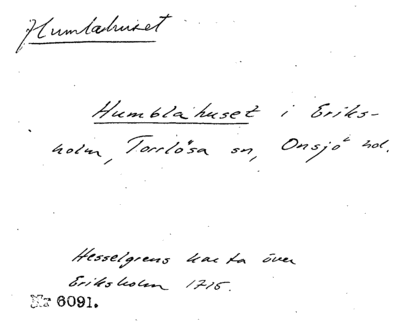 Humlahuset
Humblahuset i Eriks-
holm, Torrlösa sn, Onsjö hd.
Hesselgrens karta över
Eriksholm 1715.
Nr 6091.